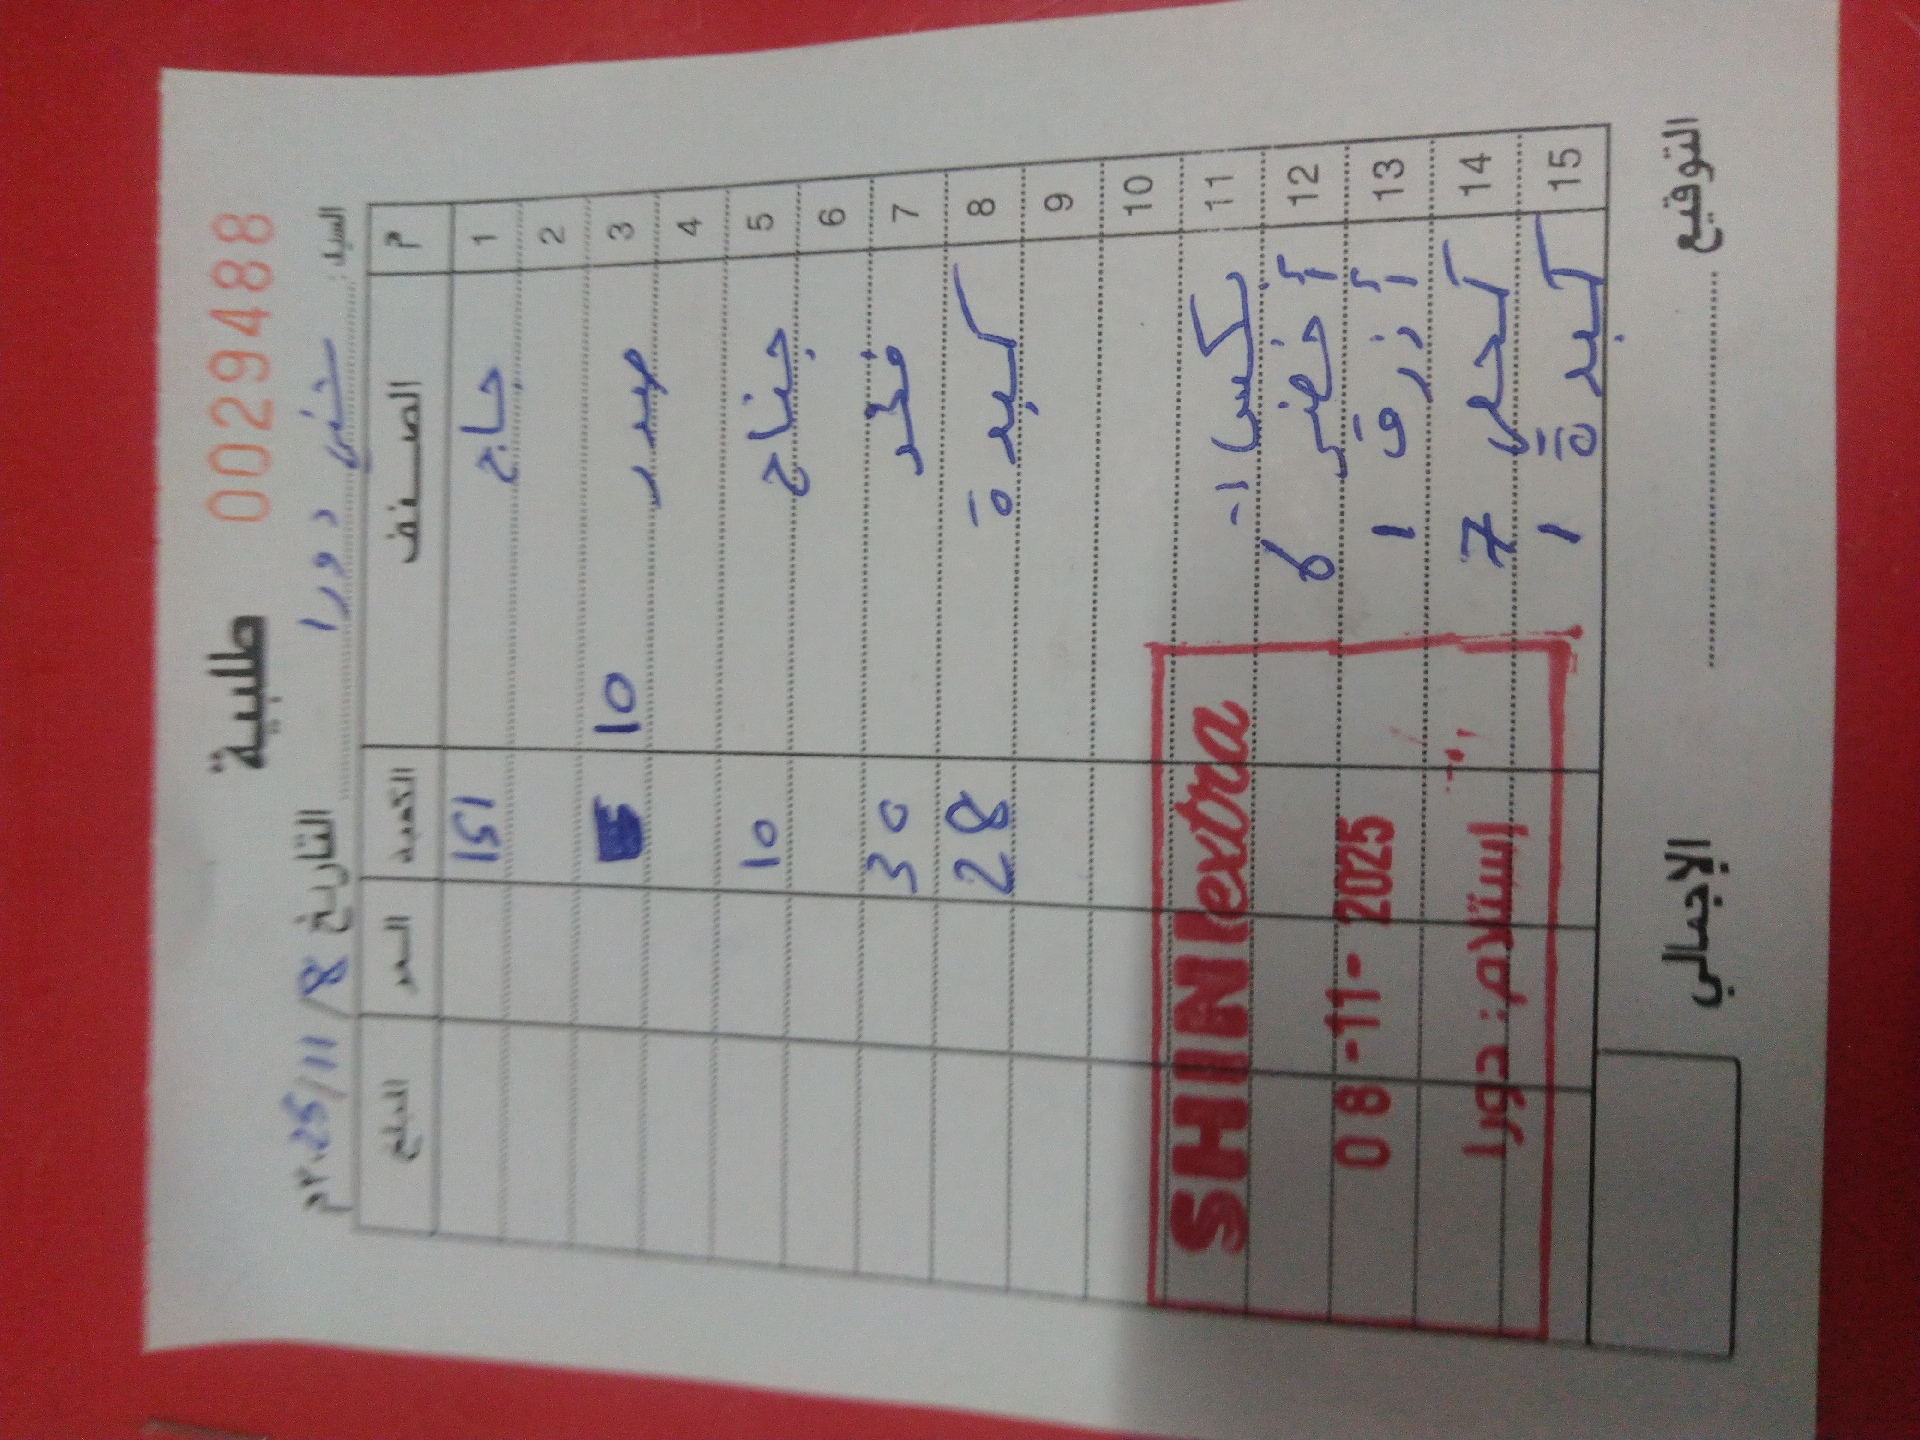 0029488
طلبية
السيد: شني دورا
التاريخ 8/11/2025م
م الصنف الكمية السعر المبلغ
1 حاج 151
2
3 صدر 10
4
5 جناح 10
6
7 فخد 30
8 كبدة 28
9
10
11 كسات
12 أخضر 6
13 أزرق 1
14 كحلي 7
15 كبدة 1
SHINI extra
08-11-2025
إستلام: دورا
التوقيع
الإجمالي